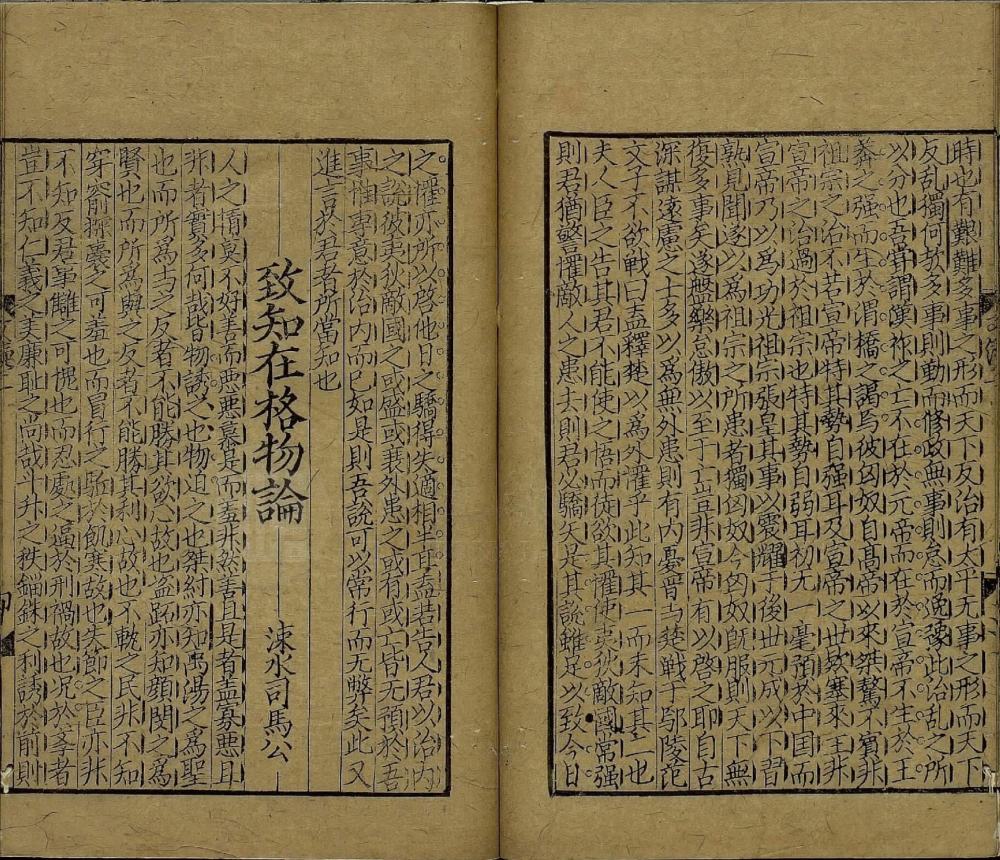 時也有艱難多事之形而天下反治有太平无事之形而天下
反乱獨何故多事則勤而修政無事則怠而逸豫此治乱之所
以分也吾甞謂漢祚之亡不在於元帝而在於宣帝不生於王
莽之强而生於渭橋之謁烏彼匈奴自髙帝以來桀驁不賓非
祖宗之治不若宣帝特其勢自强耳及宣帝之世欵塞來王非
宣帝之治過於祖宗也特其勢自弱耳初无一毫預於中国而
宣帝乃以爲功光祖宗張皇其事以震耀于後世元成以下習
熟見聞遂以爲祖宗之所患者獨匈奴今匈奴旣服則天下無
復多事矣遂盤樂怠傲以至于亡豈非宣帝有以啓之耶自古
深謀遠慮之士多以爲無外患則有内憂晉与楚戰于鄢陵范
文子不欲戰曰盍釋楚以爲外懼乎此知其一而未知其二也
夫人臣之告其君不能使之悟而徒欲其懼使夷狄敵國常强
則君猶警懼敵人之患去則君必驕矣是其說雖足以致今日
之懼亦所以啓他日之驕得失適相半耳盍若告人君以治内
之說彼夷狄敵國之或盛或衰外患之或有或亡皆无預於吾
事惟專意於治内而已如是則吾說可以常行而无弊矣此又
進言於君者所當知也
致知在格物論
涑水司馬公
人之情莫不好善而惡惡慕是而羞非然善且是者盖寡惡且
非者實多何哉皆物誘之也物迫之也桀紂亦知禹湯之爲聖
也而所爲与之反者不能勝其欲心故也盗跖亦知顔閔之爲
賢也而所爲與之反者不能勝其利心故也不軌之民非不知
穿窬探囊之可羞也而冒行之驅於飢寒故也失節之臣亦非
不知反君事讎之可愧也而忍處之逼於刑禍故也况於李者
豈不知仁義之美廉耻之尚哉斗升之秩錙銖之利誘於前則